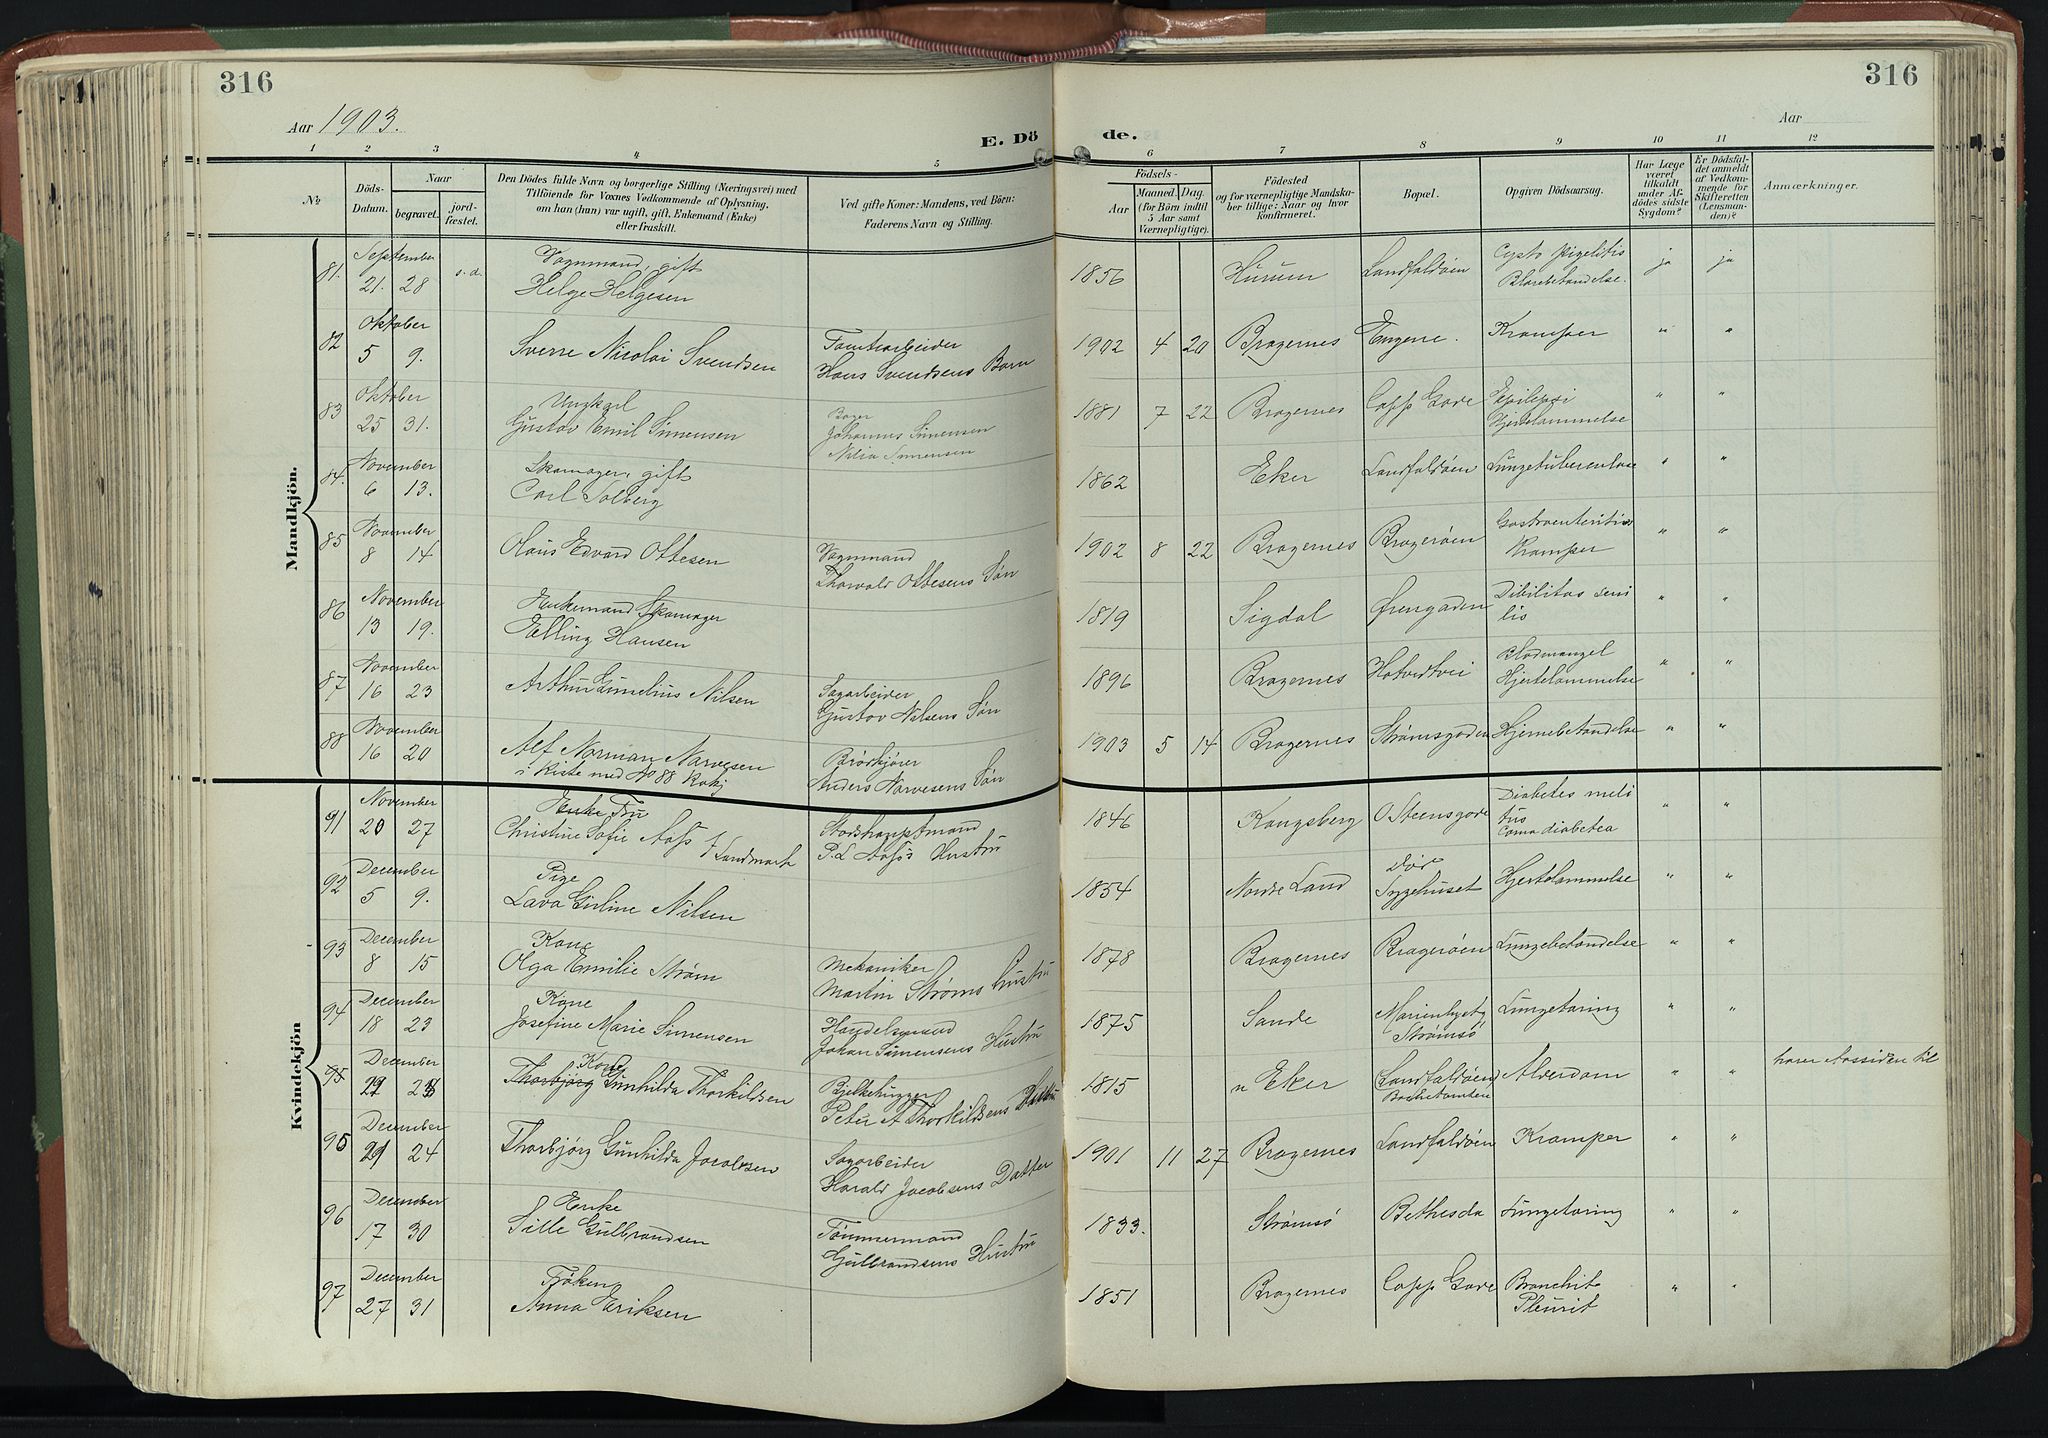 316
316
Aar 1903.
E. Dö
de.
Aar
1 2 3 4 5 6 7 8 9 10 11 12
No
Döds-
Datum.
Naar
begravet.
jord-
fæstet.
Den Dödes fulde Navn og borgerlige Stilling (Næringsvei) med
Tilföiende for Voxnes Vedkommende af Oplysning,
om han (hun) var ugift, gift, Enkemand (Enke)
eller fraskilt.
Ved gifte Koner: Mandens, ved Börn:
Faderens Navn og Stilling.
Födsels-
Aar
Maaned. Dag.
(for Börn indtil
5 Aar samt
Værnepligtige).
Födested
og for værnepligtige Mandska-
ber tillige: Naar og hvor
konfirmeret.
Bopæl.
Opgiven Dödsaarsag.
Har Læge
været
tilkaldt
under Af-
dödes sidste
Sygdom?
Er Dödsfal-
det anmeldt
af Vedkom-
mende for
Skifteretten
(Lensman-
den)?
Anmærkninger.
Mandkjön.
81. September Vognmand, gift Cysto
21. 28 s. d. Helge Helgesen 1856 Hurum Landfaldøen Blærebetændelse. ja ja
82 Oktober Tomtearbeider
5 9. Sverre Nicolai Svendsen Hans Svendsens Barn 1902 4 20 Bragernes Engene. Kramper " "
83 Oktober Ungkarl Bager Epilepsi
25 31. Gustav Emil Simensen Johannes Simensen 1881 7 22 Bragernes Capp Gade Hjertelammelse " "
Simensen
84. November Skomager, gift
6 13. Carl Solberg 1862 Eker Landfaldøen Lungetuberculose " "
85 November Vognmand Gastroenteritis
8 14 Olaus Edvard Ottesen Thorvald Ottesens Søn 1902 8 22 Bragernes Bragerøen Kramper " "
86 November Enkemand Skomager Dibilitas seni
13 19. Elling Hansen 1819 SigdalØrengaden lis " "
87 November Sagarbeider Blodmangel
16 23 Arthur Gunelius Nilsen Gustav Nilsens Søn 1896 Bragernes Hotvedtvei Hjertelammelse " "
88 November Brödkjører
16 20 Alf Norman Narvesen Anders Narvesens Søn 1903 5 14 Bragernes Strømsgaden Hjernebetændelse " "
i Kiste med No 88
Kvindekjön
91 November Enke Fru Stadshauptmand Diabetes meli
20 27 Christine Sofie Aass f Landmark P. L Aass's Hustru 1846 Kongsberg O Steensgade tus " "
Coma diabetea
92 December Pige Dør
5 9. Lava Girline Nilsen 1854 Nordre Land Sygehuset Hjertelammelse " "
93 December Kone Mekaniker
8 15 Olga Emilie Strøm Martin Strøms Hustru 1878 Bragernes Bragerøen Lungebetændelse " "
94 December Kone Handelsmand Marienlyst
18 23 Josefine Marie Simensen Johan Simensens Hustru 1875 Sande Strømsø Lungetæring " "
95 December Kone Bjelkehugger
Thorbjørg Gunhilda Thorkildsen Peter A Thorkildsens Hustru 1815 n Eker Landfaldøen Alderdom " " hører Aassiden til
95 December Sagarbeider
21 24 Thorbjörg Gunhilda Jacobsen Harald Jacobsens Datter 1901 11 27 Bragernes Landfaldøen Kramper " "
96 December Enke Tömmermand
17 30 Sille Gulbrandsen Gulbrandsens Hustru 1833. Strømsö Bethesda Lungetæring " "
97 December Frøken Bronchit
27 31 Anna Eriksen 1851 Bragernes Capp Gade Pleurit " "